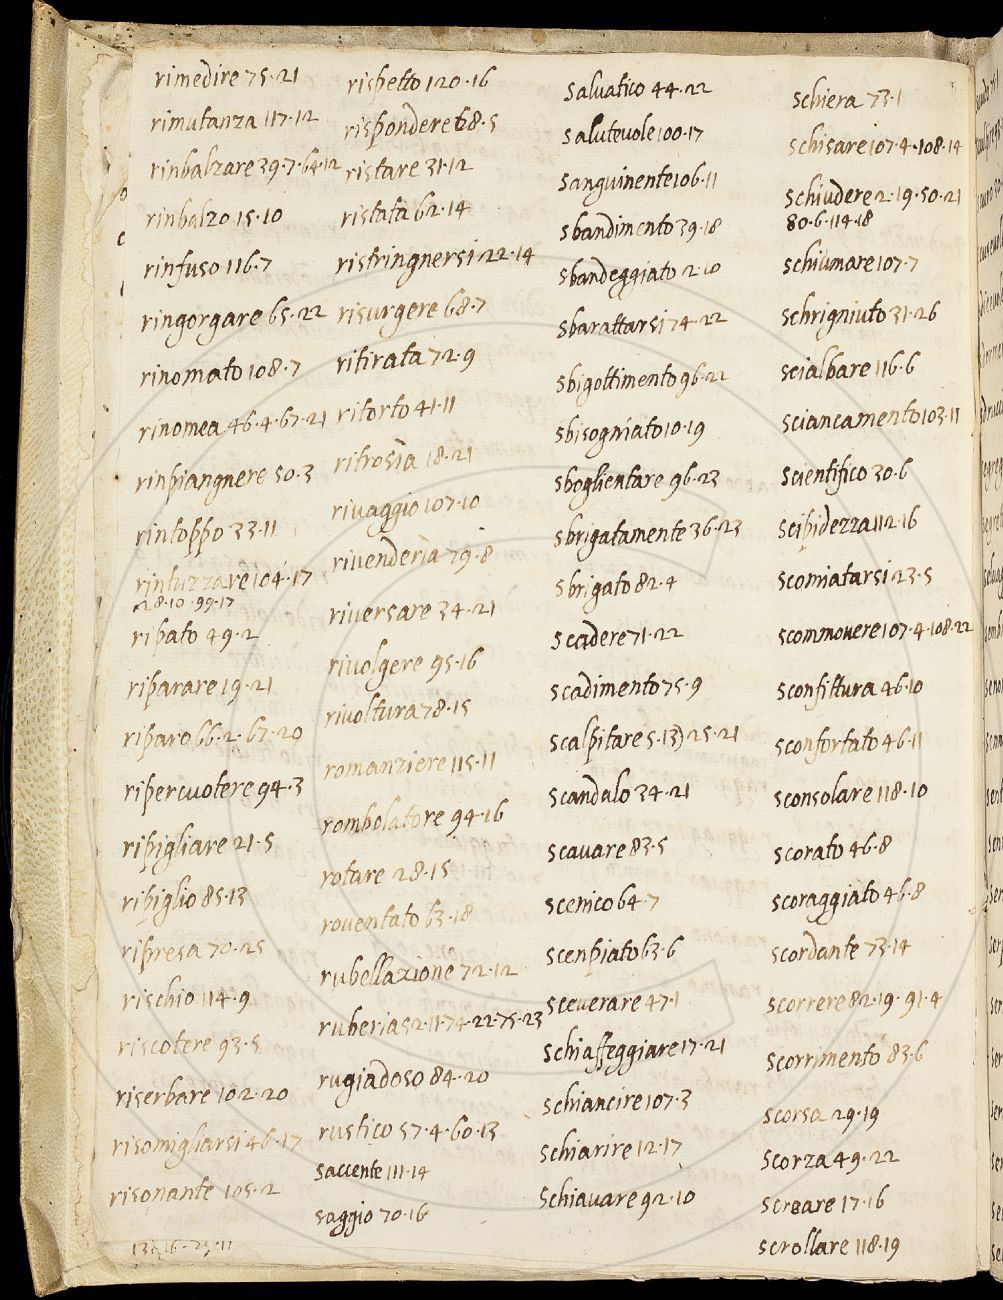 rimedire 75·21
rimutanza 117·12
rinbalzare 39·7·64·12
rinbalzo 15·10
rinfuso 116·7
ringorgare 65·22
rinomato 108·7
rinomea 46·4·67·21
rinpiangnere 50·3
rintoppo 33·11
rintuzzare 104·17
28·10·99·17
ripato 49·2
riparare 19·21
riparo 66·2·67·20
ripercuotere 94·3
ripigliare 21·5
ripiglio 85·13
ripresa 70·25
rischio 114·9
riscotere 93·5
riserbare 102·20
risomigliarsi 46·17
risonante 105·2
rispetto 120·16
rispondere 68·5
ristare 31·12
ristata 62·14
ristringnersi 22·14
risurgere 68·7
ritirata 72·9
ritorto 41·11
ritrosia 18·21
rivaggio 107·10
rivenderia 79·8
riversare 34·21
rivolgere 95·16
rivoltura 78·15
romanziere 115·11
rombolatore 94·16
rotare 28·15
roventato 63·18
rubellazione 72·12
ruberia 52·11·74·22·75·23
rugiadoso 84·20
rustico 57·4·60·13
saccente 111·14
saggio 70·16
salvatico 44·22
salutevole 100·17
sanguinente 106·11
sbandimento 39·18
sbandeggiato 2·10
sbarattarsi 74·22
sbigottimento 96·22
sbisogniato 10·19
sboglientare 96·23
sbrigatamente 36·23
sbrigato 82·4
scadere 71·22
scadimento 75·9
scalpitare 5·13) 25·21
scandalo 34·21
scavare 83·5
scenico 64·7
scenpiato 63·6
sceverare 47·1
schiaffeggiare 17·21
schiancire 107·3
schiarire 12·17
schiavare 92·10
schiera 73·1
schisare 107·4·108·14
schiudere 2·19·50·21
80·6·114·18
schiumare 107·7
schrigniuto 31·26
scialbare 116·6
sciancamento 103·11
scientifico 30·6
scipidezza 112·16
scomiatarsi 23·5
scommovere 107·4·108·22
sconfittura 46·10
sconfortato 46·11
sconsolare 118·10
scorato 46·8
scoraggiato 46·8
scordante 73·14
scorrere 82·19·91·4
scorrimento 83·6
scorsa 29·19
scorza 49·22
screare 17·16
scrollare 118·19